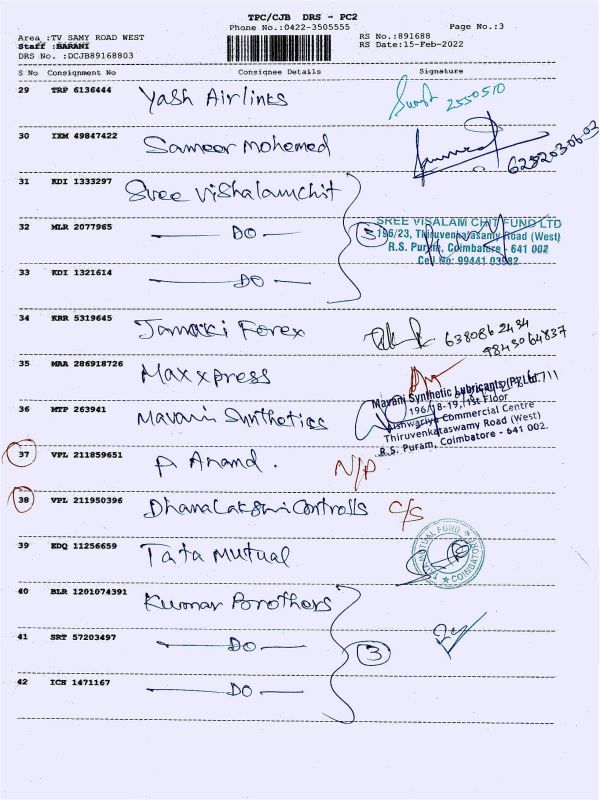 TPC/CJB DRS - PC2
Phone No.:0422-3505555
Page No.:3
Area :TV SAMY ROAD WEST
RS No.:891688
Staff :BARANI
RS Date:15-Feb-2022
DRS No. :DCJB89168803
S No Consignment No Consignee Details Signature
29 TRP 6136444 Yash Airlines 2550510
30 IXM 49847422 Sameer Mohomed
31 KDI 1333297 Sree Vishalamchit
32 MLR 2077965 DO 5
SREE VISALAM CHIT FUND LTD
196/23, Thiruvenkatasamy Road (West)
R.S. Puram, Coimbatore - 641 002
Cell No: 99441 03582
33 KDI 1321614 DO
34 KRR 5319645 Janaki Forex 6380862434
9843064837
35 MAA 286918726 Maxxpress
36 MTP 263941 Mavani Synthetics
Mavani Synthetic Lubricants (P) Ltd.
196/18-19, 1st Floor
Aishwariya Commercial Centre
Thiruvenkataswamy Road (West)
R.S. Puram, Coimbatore - 641 002.
37 VPL 211859651 P Anand. N/P
38 VPL 211950396 Dhanalakshmi Controlls C/S
39 EDQ 11256659 Tata Mutual
TATA MUTUAL FUND COIMBATORE
40 BLR 1201074391 Kumar Brothers
41 SRT 57203497 DO 3
42 ICH 1471167 DO